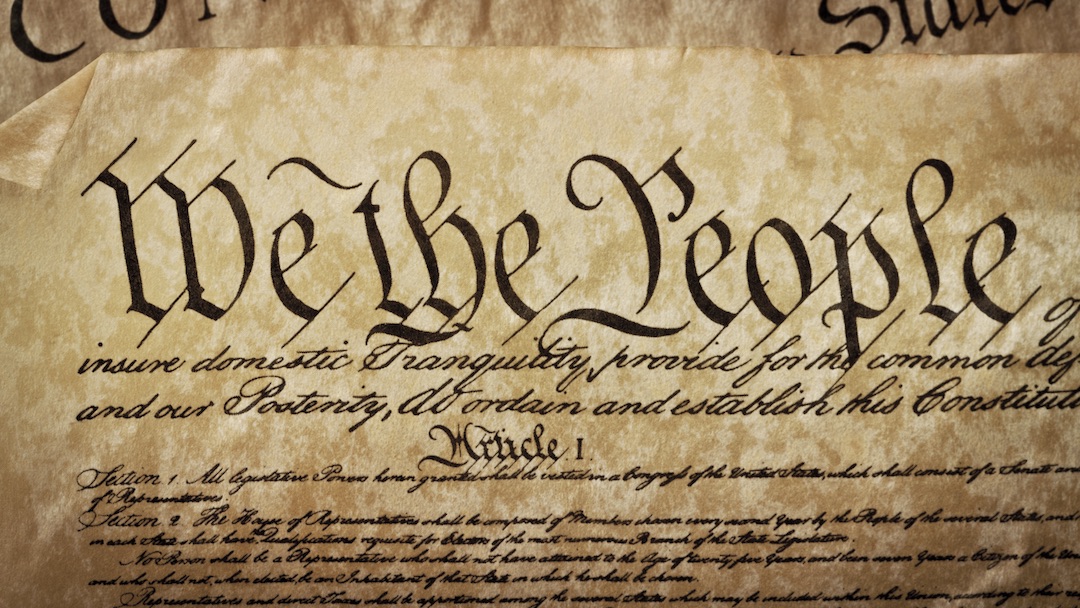 States
We the People of
insure domestic Tranquility, provide for the common def
and our Posterity, do ordain and establish this Constituti
Article. I.
Section 1. All legislative Powers herein granted shall be vested in a Congress of the United States, which shall consist of a Senate and
of Representatives.
Section 2. The House of Representatives shall be composed of Members chosen every second Year by the People of the several States, and
in each State shall have the Qualifications requisite for Electors of the most numerous Branch of the State Legislature.
No Person shall be a Representative who shall not have attained to the Age of twenty five Years, and been seven Years a Citizen of the
and who shall not, when elected, be an Inhabitant of that State in which he shall be chosen.
Representatives and direct Taxes shall be apportioned among the several States which may be included within this Union, according to their